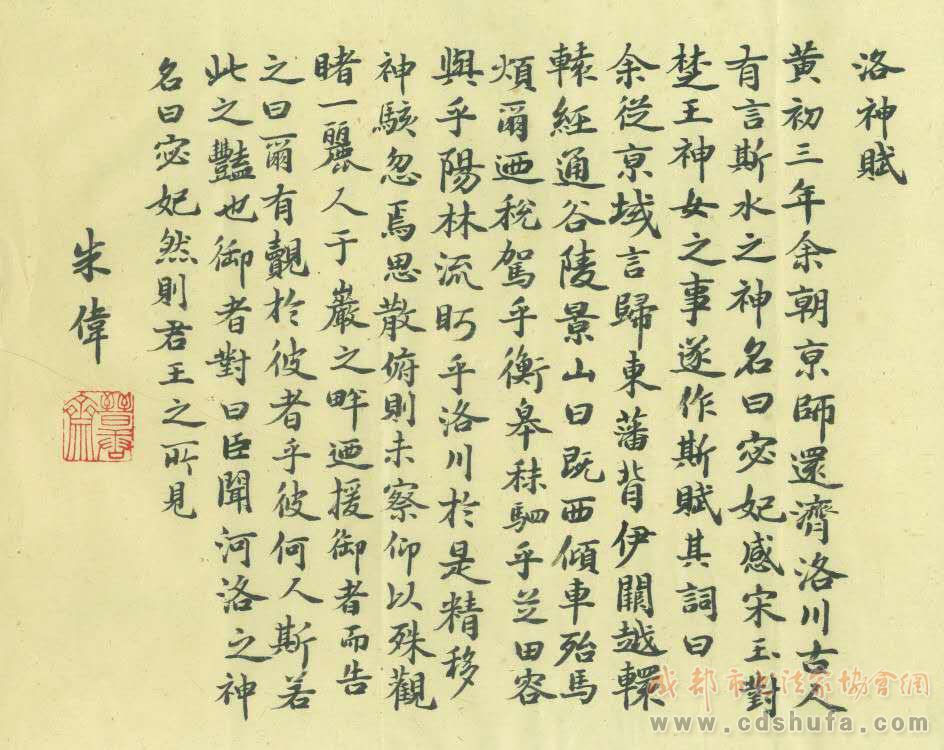 洛神賦
黄初三年余朝亰師還濟洛川古人
有言斯水之神名曰宓妃感宋玉對
楚王神女之事遂作斯賦其詞曰
余從亰域言歸東藩背伊闕越轘
轅經通谷陵景山日既西傾車殆馬
煩爾迺稅駕乎衡皋秣駟乎芝田容
與乎陽林流眄乎洛川於是精移
神駭忽焉思散俯則未察仰以殊觀
睹一麗人于巖之畔迺援御者而告
之曰爾有覿於彼者乎彼何人斯若
此之豔也御者對曰臣聞河洛之神
名曰宓妃然則君王之所見
朱偉
成都市书法家協會網
www.cdshufa.com